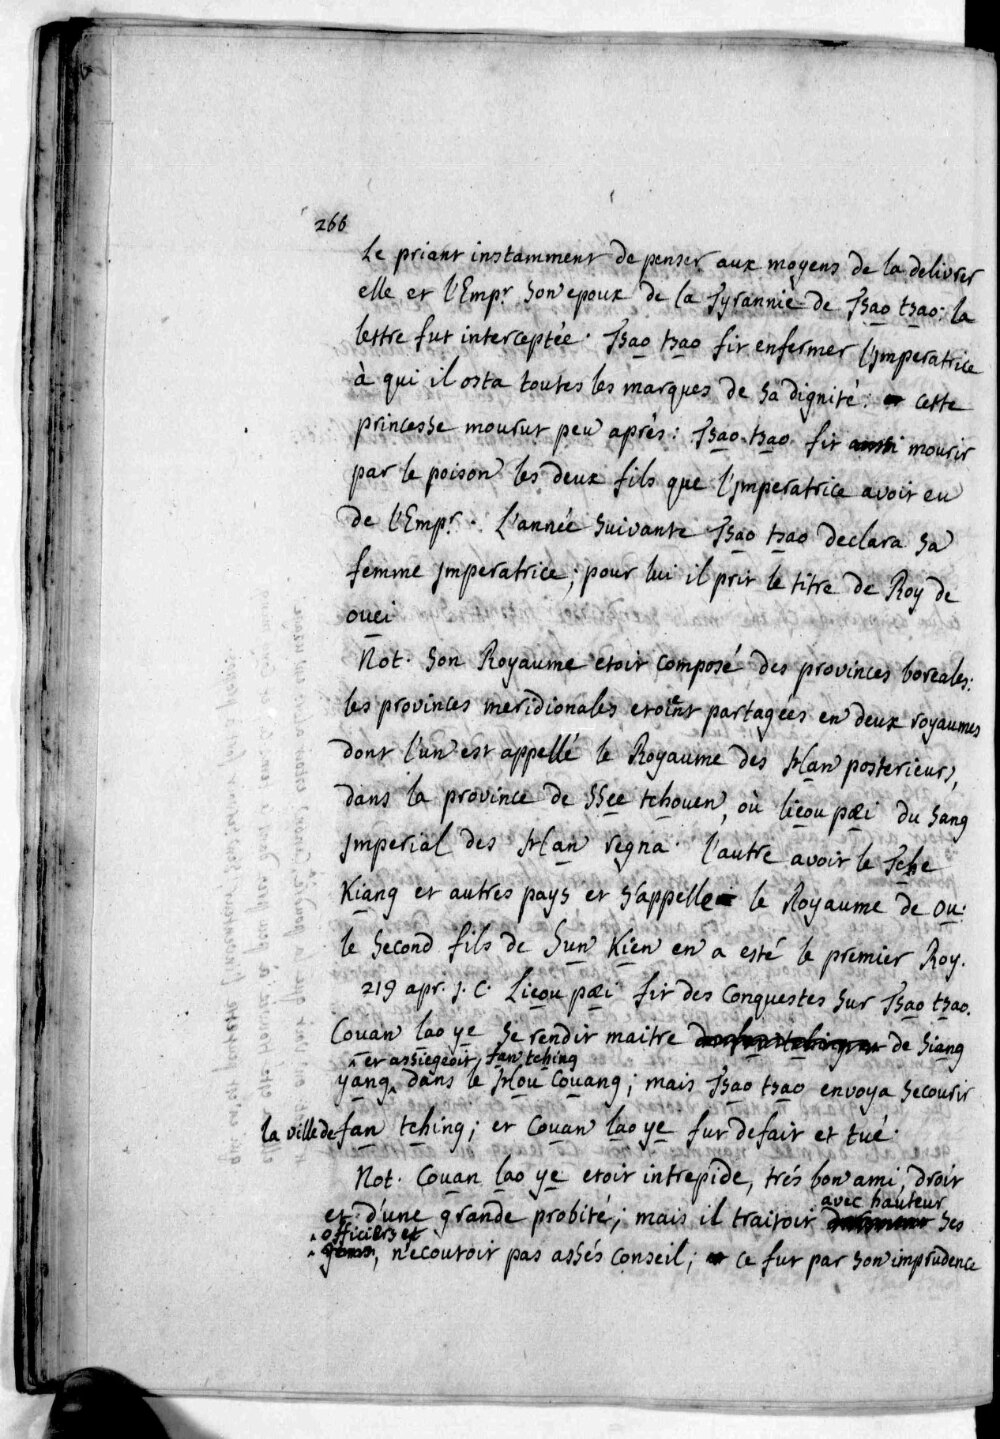 266
Le priant instamment de penser aux moyens de la delivrer
elle et l'Empr son epoux de la Tyrannie de Tsao tsao: la
lettre fut interceptée. Tsao tsao fit enfermer l'jmperatrice
à qui il osta toutes les marques de sa dignité: cette
princesse mourut peu aprés: Tsao tsao fit aussi mourir
par le poison les deux fils que l'jmperatrice avoit eu
de l'Empr. L'année suivante Tsao tsao declara sa
femme jmperatrice; pour lui il prit le titre de Roy de
ouei
Not. Son Royaume etoit composé des provinces boreales:
les provinces meridionales etoint partagées en deux royaumes
dont l'un est appellé le Royaume des Han posterieurs,
dans la province de SSee tchouen, où lieou pæi du sang
jmperial des Han regna. l'autre avoit le Tche
Kiang et autres pays et s'appelle le Royaume de ou:
le second fils de Sun Kien en a esté le premier Roy.
219 apr. J. C. Lieou pæi fit des Conquestes sur Tsao tsao.
Couan lao ye se rendit maitre de Siang
et assiegeoit fan tching
yang dans le Hou Couang; mais Tsao tsao envoya secourir
la ville de fan tching; et Couan lao ye fut defait et tué.
Not. Couan lao ye etoit intrepide, trés bon ami, droit
avec hauteur
et d'une grande probité; mais il traitoit ses
officiers et
gens, n'ecoutoit pas assés conseil; ce fut par son imprudence